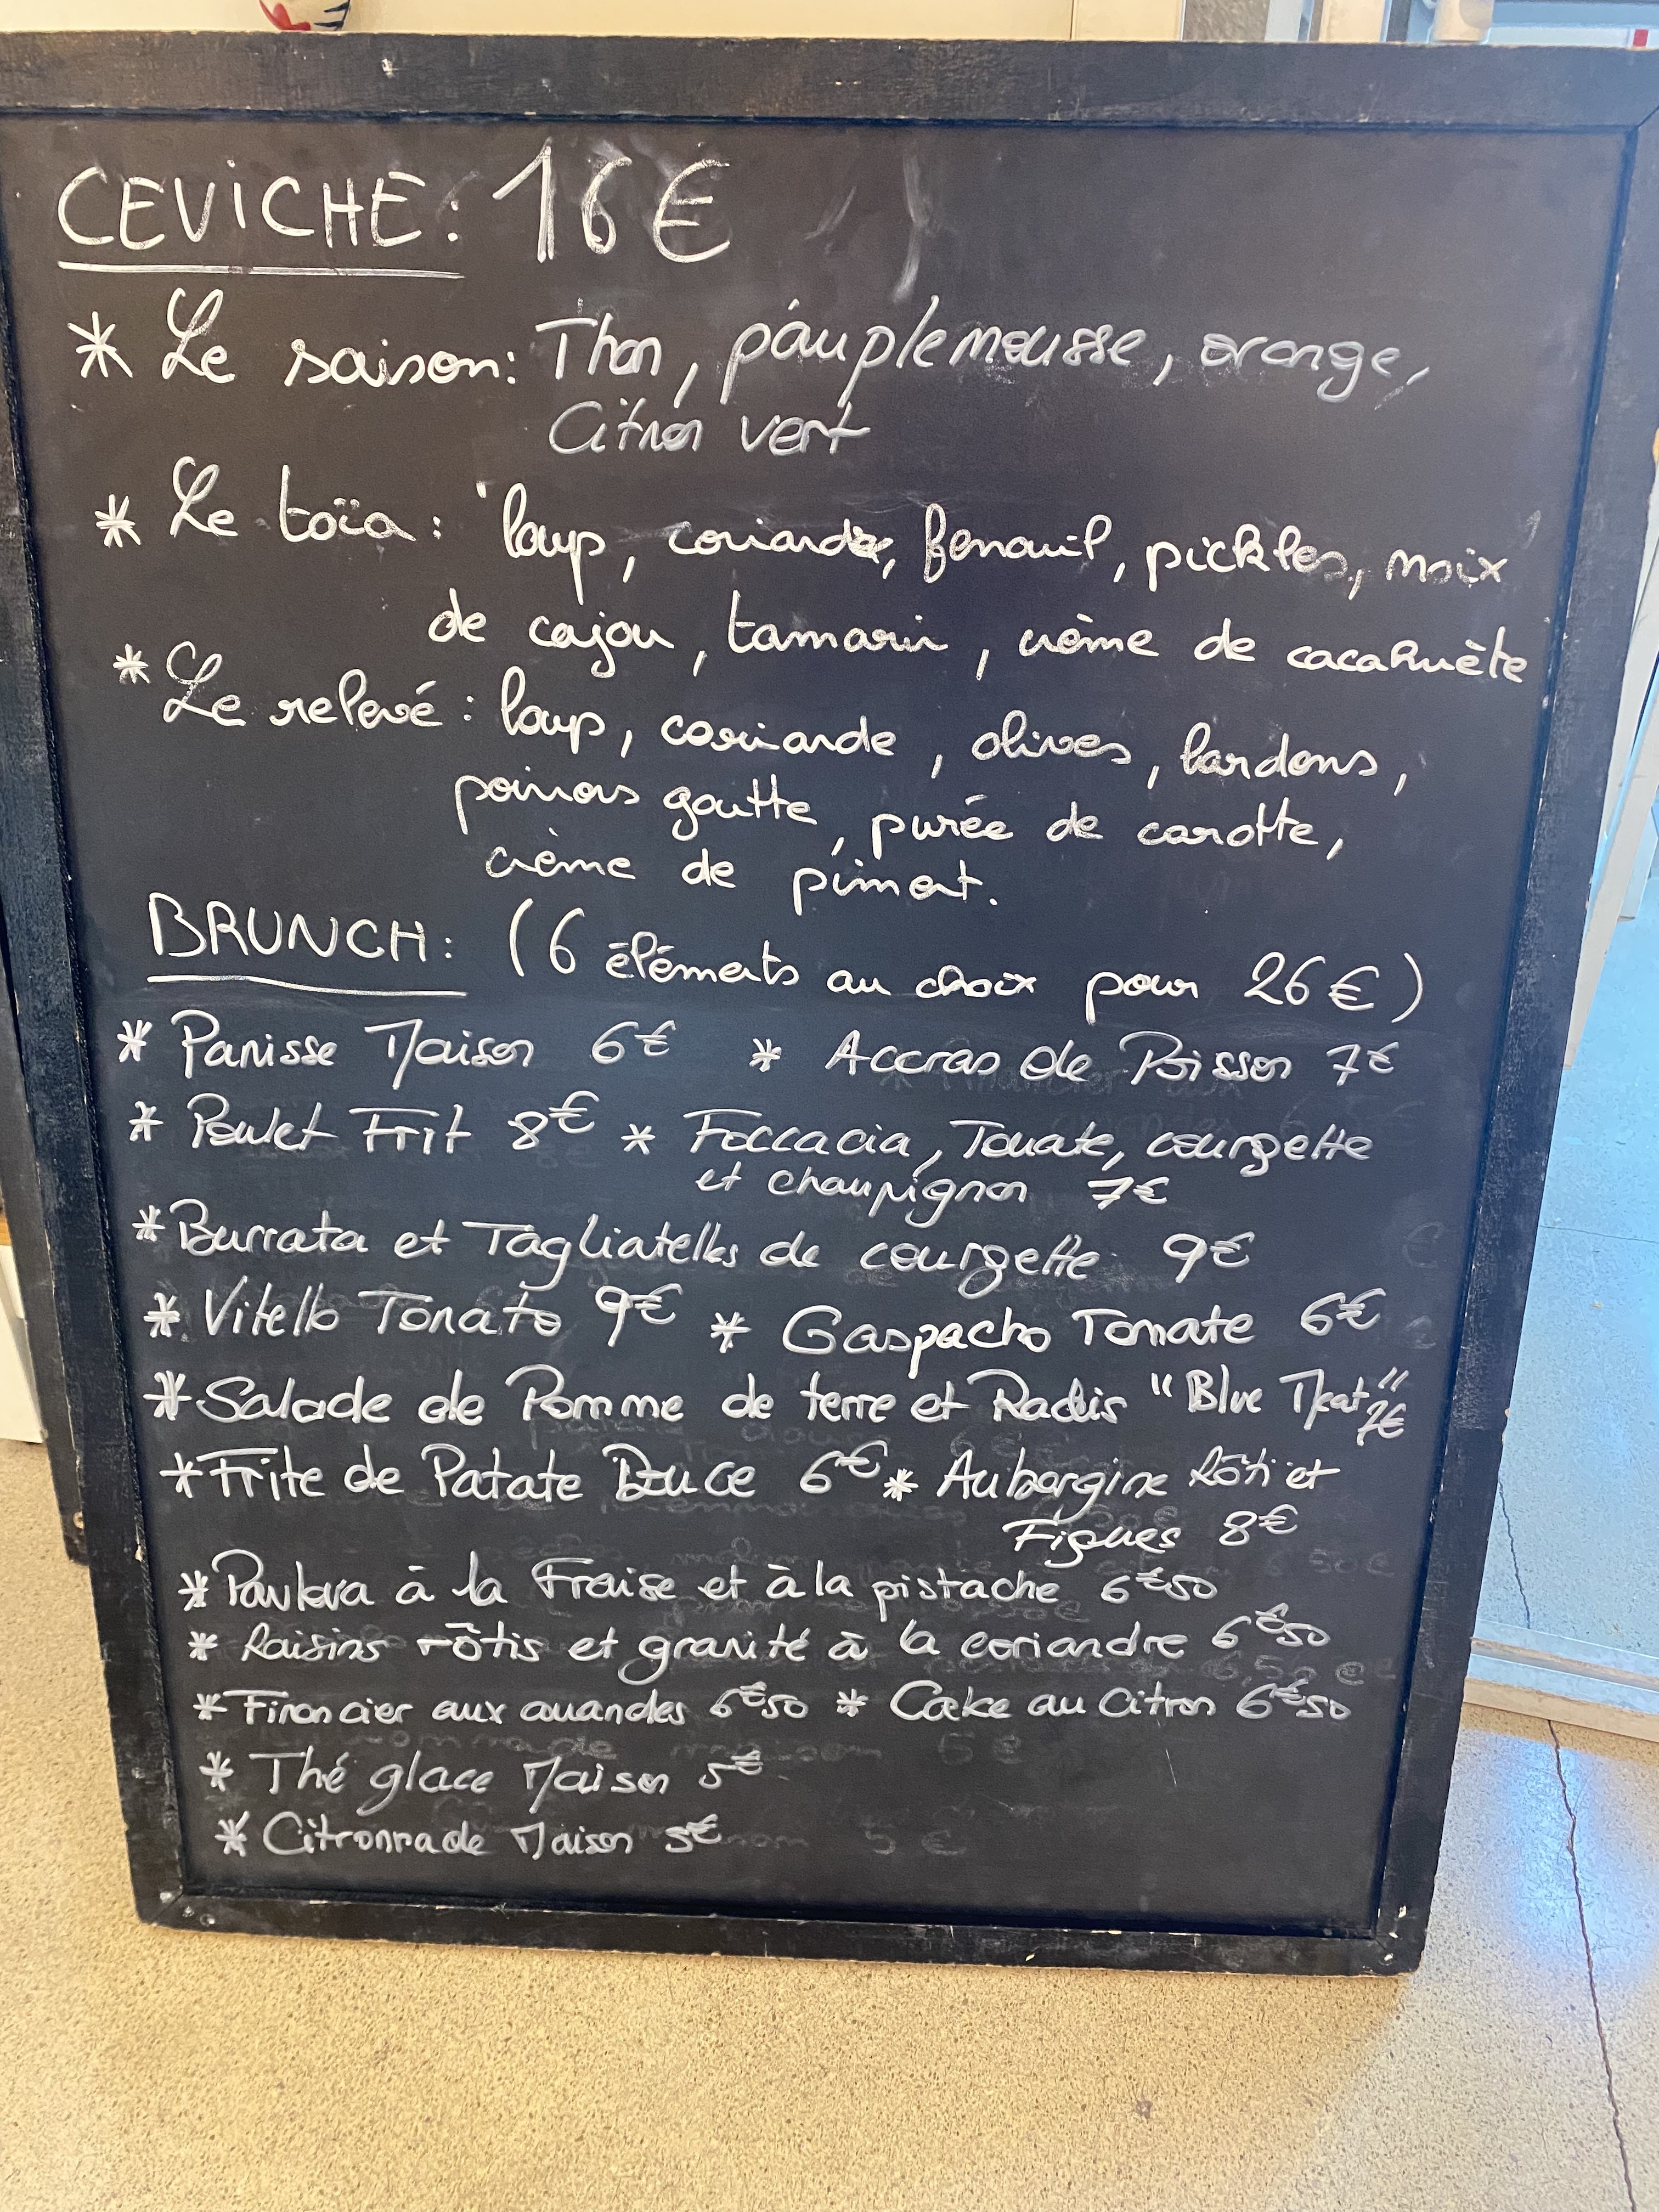 CEVICHE: 16€
* Le saison: Thon, pauplemousse, orange,
Citron vert
* Le toïa: loup, coriandre, fenouil, pickles, noix
de cajou, tamarin, crème de cacahuète
* Le relevé: loup, coriande, olives, lardons,
poivrons goutte, purée de carotte,
crème de piment.
BRUNCH: (6 éléments au choix pour 26€)
* Panisse Maison 6€ * Accras de Poisson 7€
* Poulet Frit 8€ * Foccacia, Tomate, courgette
et champignon 7€
* Burrata et Tagliatelles de courgette 9€
* Vitello Tonato 9€ * Gaspacho Tomate 6€
* Salade de Pomme de terre et Radis "Blue Meat" 7€
* Frite de Patate Douce 6€ * Aubergine Rôti et
Figues 8€
* Pavlova à la Fraise et à la pistache 6€50
* Raisins rôtis et granité à la coriandre 6€50
* Financier aux amandes 6€50 * Cake au Citron 6€50
* Thé glace Maison 5€
* Citronnade Maison 5€